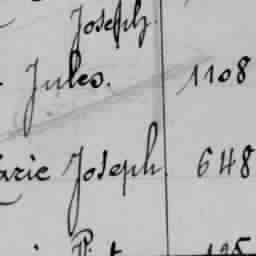 Joseph.
Jules. 1108
Marie Joseph. 648